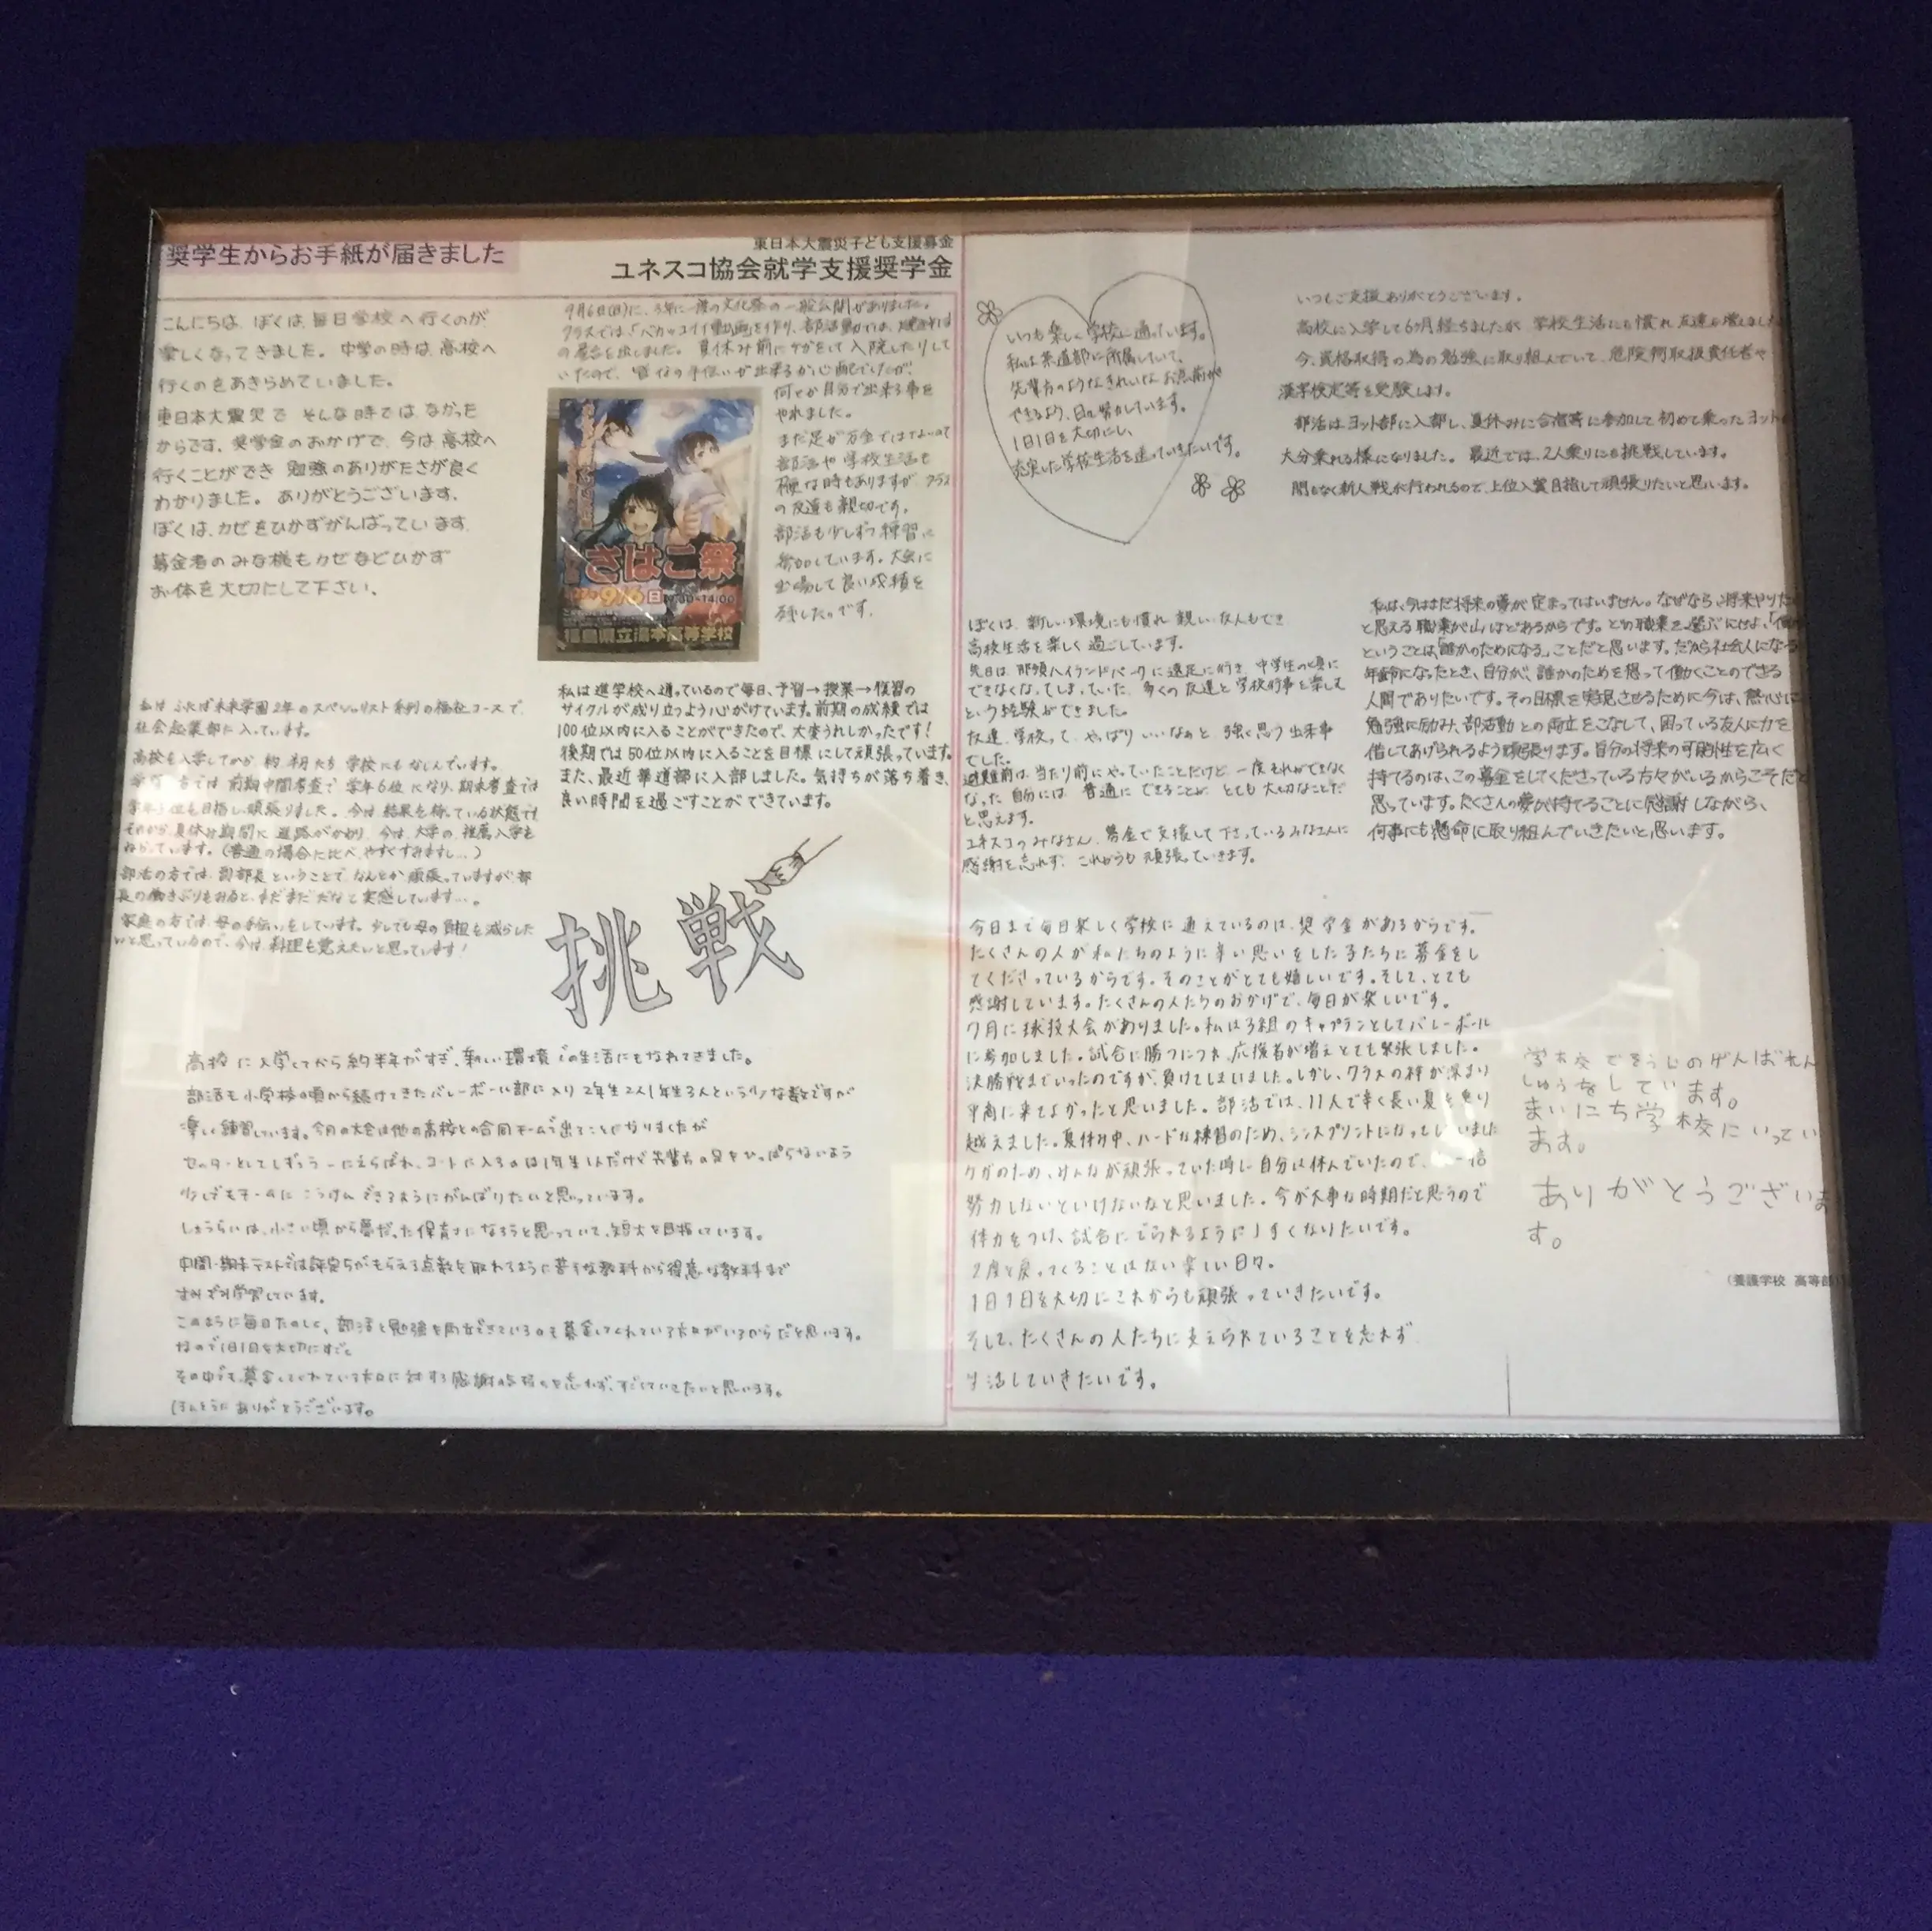 奨学生からお手紙が届きました
東日本大震災子ども支援募金
ユネスコ協会就学支援奨学金
こんにちは、ぼくは、毎日学校へ行くのが
楽しくなってきました。中学の時は、高校へ
行くのをあきらめていました。
東日本大震災で そんな時ではなかった
からです。奨学金のおかげで、今は高校へ
行くことができ 勉強のありがたさが良く
わかりました。ありがとうございます。
ぼくは、カゼをひかずがんばっています。
募金者のみな様もカゼなどひかず
お体を大切にして下さい。
9月6日(日)に、3年に一度の文化祭の一般公開がありました。
の屋台を出しました。夏休み前にケガをして入院したりして
いたので、
何とか自分で出来る事を
やれました。
まだ足が万全ではないので
部活や学校生活も
大変な時もありますが クラス
の友達も親切です。
部活も少しずつ練習に
参加しています。大会に
出場して良い成績を
残したいです。
さはこ祭
9/6 日
福島県立湯本高等学校
私は ふたば未来学園2年のスペシャリスト系列の福祉コースで、
社会起業部に入っています。
高校も入学してから、約半年たち 学校にもなじんでいます。
前期中間考査で 学年6位になり、期末考査では
それから、夏休み期間に 進路がかわり、今は、大学の推薦入学を
ねらっています。(普通の場合に比べ、やすくすみますし…)
部活の方では、副部長ということで、なんとか頑張っていますが、部
長の働きぶりをみると、まだまだだなと実感しています…。
家庭の方では 母の手伝いをしています。少しでも母の負担を減らした
いと思っているので、今は、料理も覚えたいと思っています!
私は進学校へ通っているので毎日、予習→授業→復習の
サイクルが成り立つよう心がけています。前期の成績では
100位以内に入ることができたので、大変うれしかったです!
後期では50位以内に入ることを目標にして頑張っています。
また、最近華道部に入部しました。気持ちが落ち着き、
良い時間を過ごすことができています。
挑戦
高校に入学してから約半年がすぎ、新しい環境での生活にもなれてきました。
部活も小学校の頃から続けてきたバレーボール部に入り 2年生2人1年生3人という少な数ですが
楽しく練習しています。今月の大会は他の高校との合同チームで出ることになりましたが
少しでもチームに こうけんできるようにがんばりたいと思っています。
しょうらいは、小さい頃から夢だった保育士になろうと思っていて、短大を目指しています。
中間・期末テストでは評定5がもらえる点数を取れるように苦手な教科から得意な教科まで
学習しています。
このように毎日たのしく、部活と勉強を両立できているのも募金してくれている方々がいるからだと思います。
なので1日1日を大切にすごし
ほんとうにありがとうございます。
いつも楽しく学校に通っています。
私は茶道部に所属していて、
先輩方のようなきれいなお点前が
できるよう、日々努力しています。
1日1日を大切にし、
充実した学校生活を送っていきたいです。
いつもご支援ありがとうございます。
高校に入学して6ヶ月経ちましたが、学校生活にも慣れ友達も増えました
今、資格取得の為の勉強に取り組んでいて、危険物取扱責任者や
漢字検定等を受験します。
部活はヨット部に入部し、夏休みに合宿等に参加して初めて乗ったヨット
大分乗れる様になりました。最近では、2人乗りにも挑戦しています。
間もなく新人戦が行われるので、上位入賞目指して頑張りたいと思います。
ぼくは、新しい環境にも慣れ、親しい友人もでき
高校生活を楽しく過ごしています。
先日は、那須ハイランドパークに遠足に行き、中学生の頃に
できなくなってしまっていた、多くの友達と学校行事を楽しむ
という経験ができました。
友達、学校って、やっぱりいいなぁと強く思う出来事
でした。
避難前は、当たり前にやっていたことだけど、一度それができなく
なった自分には、普通にできることが、とても大切なことだ
と思えます。
ユネスコのみなさん、募金で支援して下さっているみなさんに
感謝を忘れず、これからも頑張っていきます。
私は、今はまだ将来の夢が定まってはいません。なぜなら、将来やりた
と思える職業が山ほどあるからです。どの職業を選ぶにせよ、「働
ということは「誰かのためになる」ことだと思います。だから社会人になる
年齢になったとき、自分が、誰かのためを想って働くことのできる
人間でありたいです。その目標を実現させるために今は、熱心に
勉強に励み、部活動との両立をこなして、困っている友人に力を
借してあげられるよう頑張ります。自分の将来の可能性を広く
持てるのは、この募金をしてくださっている方々がいるからこそだと
思っています。たくさんの夢が持てることに感謝しながら、
何事にも懸命に取り組んでいきたいと思います。
今日まで毎日楽しく学校に通えているのは、奨学金があるからです。
たくさんの人が私たちのように辛い思いをした子たちに募金をし
てくださっているからです。そのことがとても嬉しいです。そして、とても
感謝しています。たくさんの人たちのおかげで、毎日が楽しいです。
7月に球技大会がありました。私は3組のキャプテンとしてバレーボール
に参加しました。試合に勝つにつれ、応援者が増えとても緊張しました。
決勝戦までいったのですが、負けてしまいました。しかし、クラスの絆が深まり
早商に来てよかったと思いました。部活では、11人で辛く長い夏を乗り
越えました。夏休み中、ハードな練習のため、シンスプリントになってしまいました
ケガのため、みんなが頑張っていた時に自分は休んでいたので、
努力しないといけないなと思いました。今が大事な時期だと思うので
体力をつけ、試合にでられるようにうまくなりたいです。
2度と戻ってくることはない楽しい日々。
1日1日を大切にこれからも頑張っていきたいです。
そして、たくさんの人たちに支えられていることを忘れず
生活していきたいです。
学校でそうじのげんばれん
しゅうをしています。
まいにち学校にいってい
ます。
ありがとうございま
す。
(養護学校 高等部